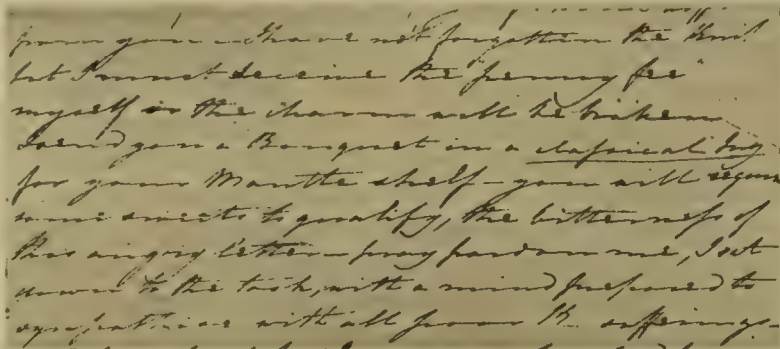 from you – I have not forgotten the Knif
but I must receive the penny fee
myself or the charm will be broken
I send you a Bouquet in a classical Jug
for your Mantle shelf – you will require
some sweets to qualify, the bitterness of
this angry letter – pray pardon me, I sat
down to the task, with a mind prepared to
sympathise with all poor K. sufferings